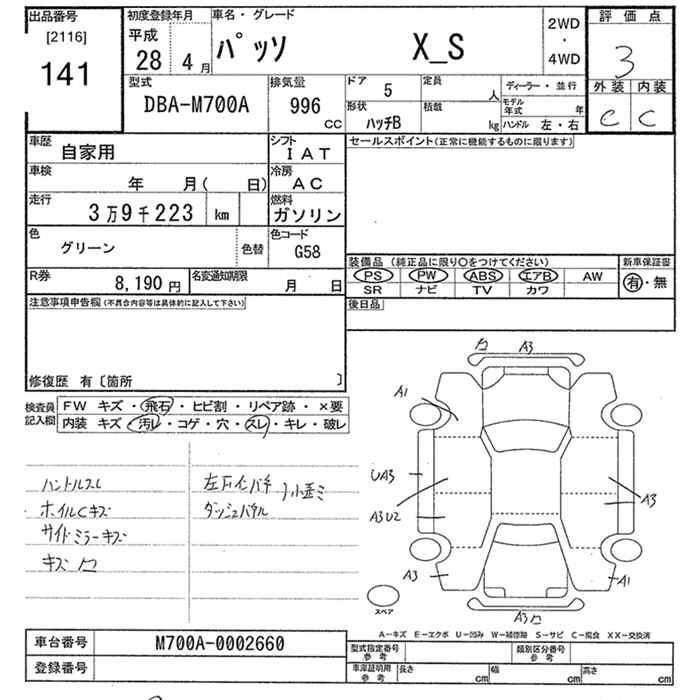 出品番号
[2116]
141
初度登録年月
平成
28 4月
車名・グレード
パッソ X_S
2WD
・
4WD
評価点
3
外装 内装
C C
型式
DBA-M700A
排気量
996
CC
ドア 5
形状 ハッチB
定員 人
積載 kg
ディーラー・並行
モデル年式 年
ハンドル 左・右
車歴 自家用
シフト IAT
車検 年 月( 日)
冷房 AC
走行 3万9千223 km
燃料 ガソリン
色 グリーン 色替
色コード G58
R券 8,190円
名変通知期限 月 日
セールスポイント(正常に機能するものに限ります)
装備品 (純正品に限り○をつけてください)
PS PW ABS エアB AW
SR ナビ TV カワ
新車保証書
有・無
後日品
注意事項申告欄(不具合内容等は具体的に記入して下さい)
修復歴 有〔箇所 〕
検査員記入欄
FW キズ・飛石・ヒビ割・リペア跡・×要
内装 キズ・汚レ・コゲ・穴・スレ・キレ・破レ
ハンドルスレ
ホイルCキズ
サイドミラーキズ
キズ
ダッシュパネル
A3
A1
UA3
A3U2
A3
A3
A1
A3
スペア
A-キズ E-エクボ U-凹み W-補修跡 S-サビ C-腐食 XX-交換済
車台番号 M700A-0002660
登録番号
型式指定番号
参考
類別区分番号
参考
車庫証明用
参考
長さ cm 幅 cm 高さ cm